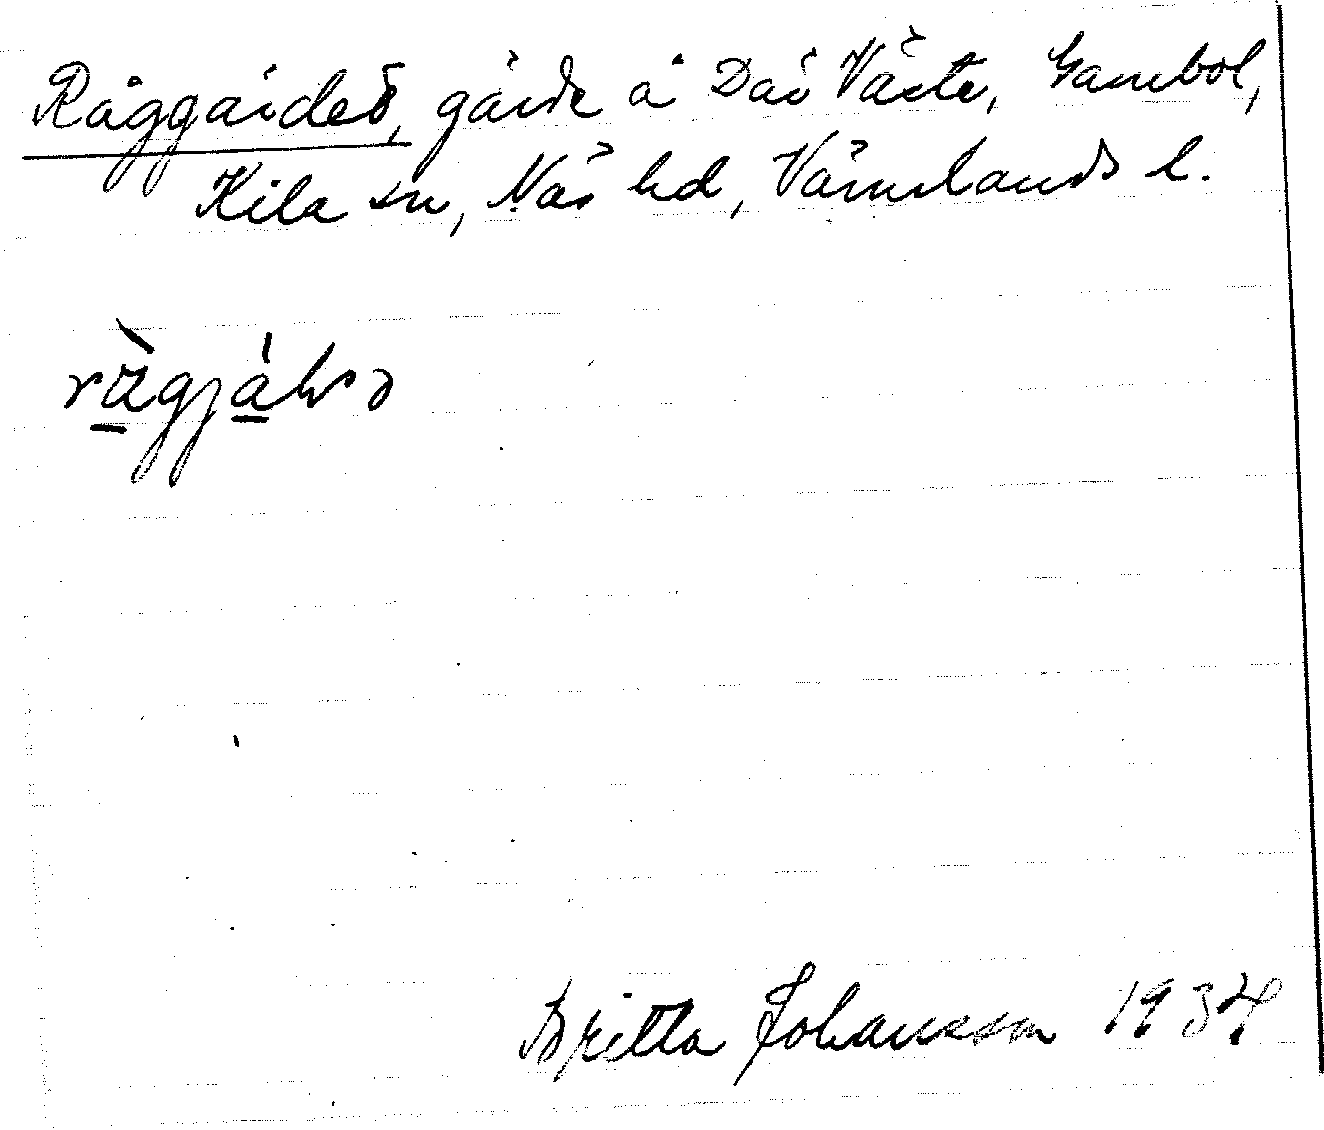 Råggärdet, gärde å Där Väste, Gambol,
Kila sn, Näs hd, Värmlands l.
Britta Johansson 1934